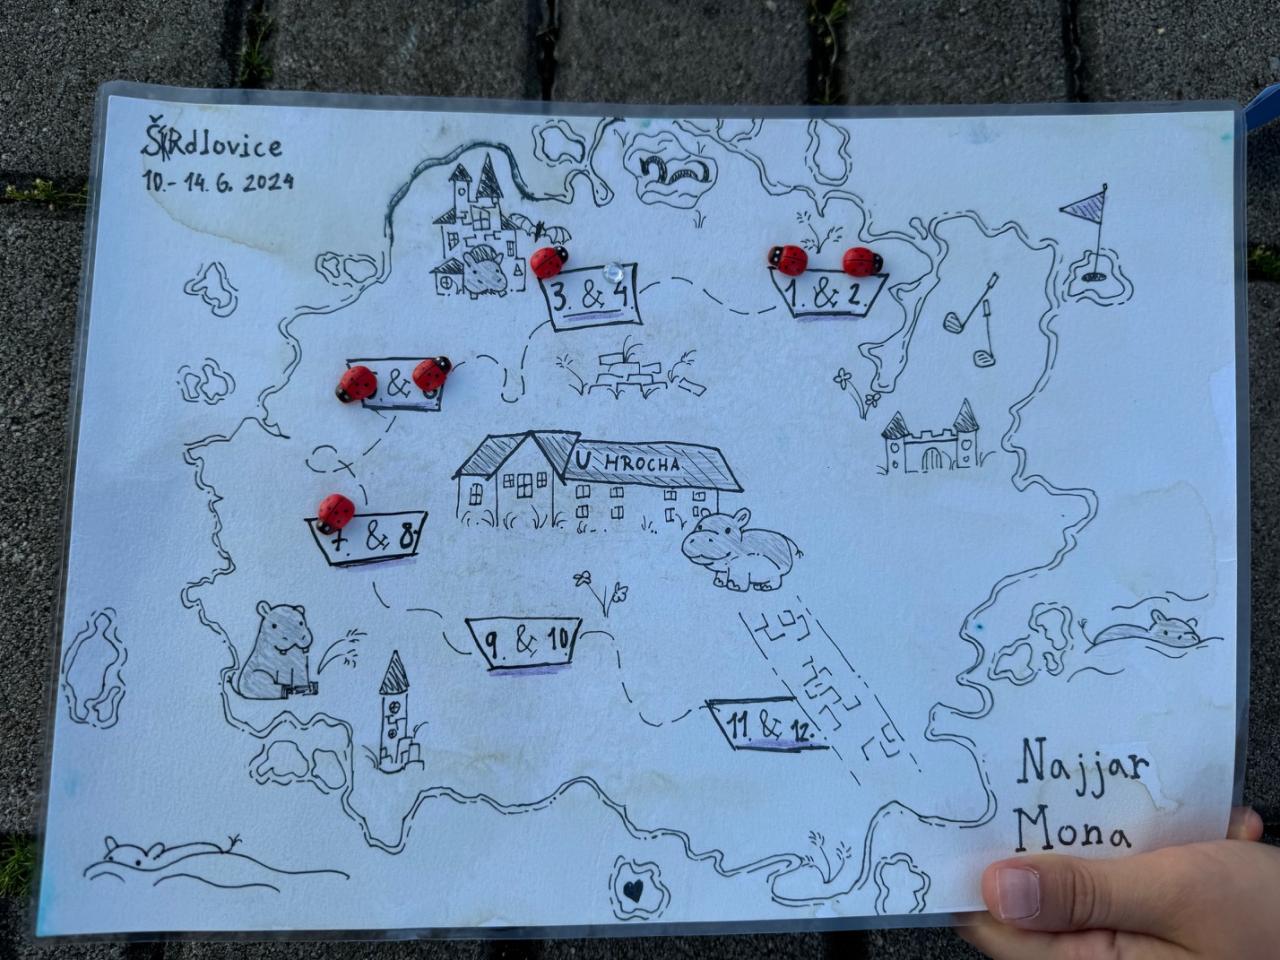 Širdlovice
10.- 14. 6. 2024
3. & 4
1. & 2.
&
U HROCHA
7. & 8.
9. & 10
11 & 12.
Najjar
Mona